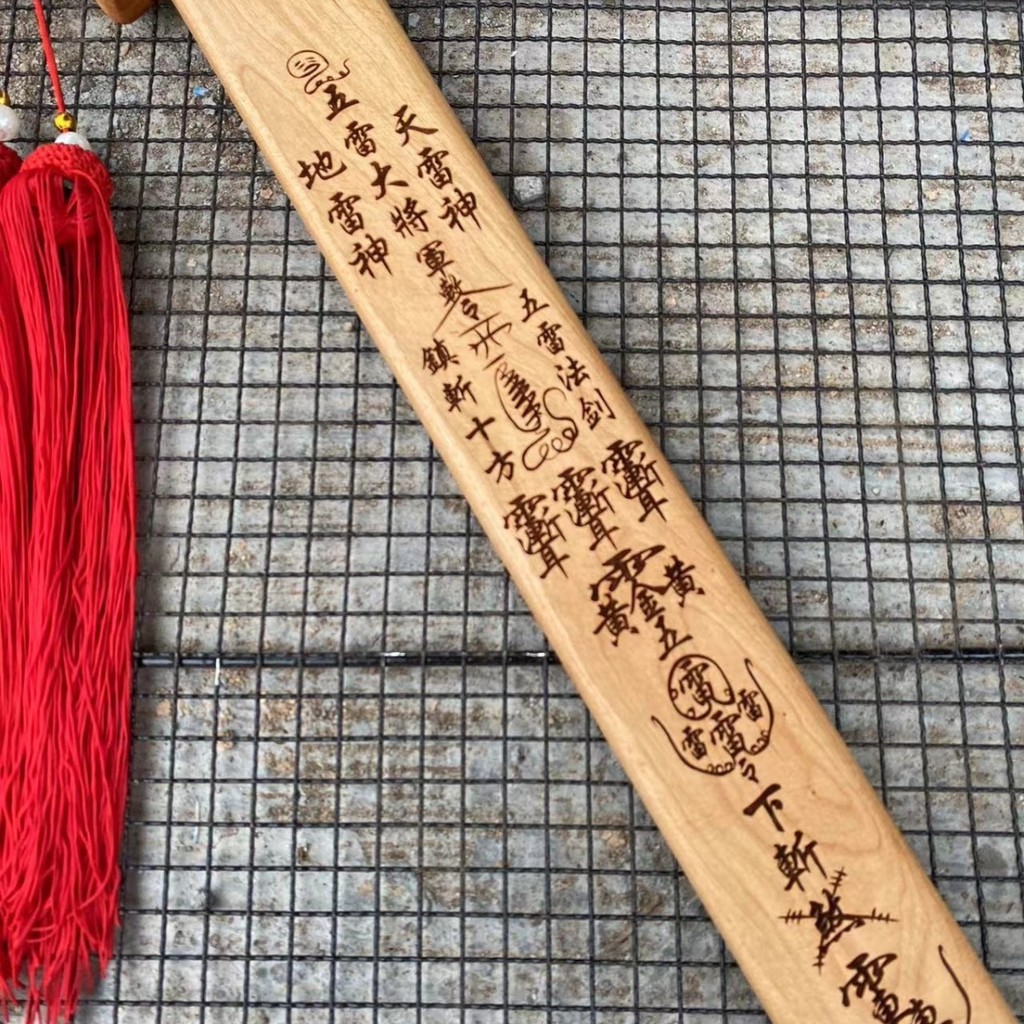 天雷神
五雷大將軍
地雷神
五雷法劍
鎮斬十方
黃
黃
五雷
雷雷雷
令下斬煞